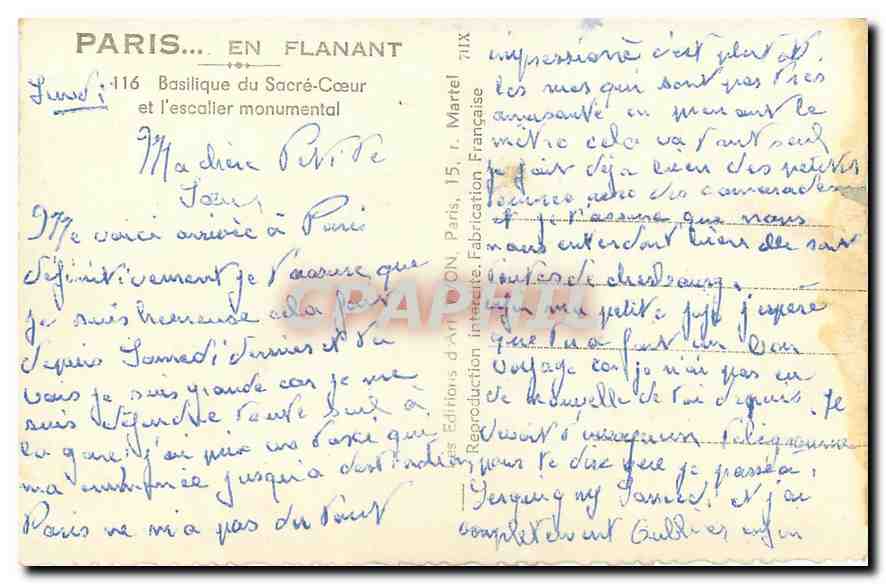 PARIS... EN FLANANT
116 Basilique du Sacré-Cœur
et l'escalier monumental
Lundi
Ma chère Petite
Sœur
Me voici arrivée à Paris
définitivement je t'assure que
je suis heureuse cela fait
depuis Samedi dernier et tu
vois je suis grande car je me
suis défendue toute seul à
la gare, j'ai pris un taxi qui
ma emmenée jusqu'à destination,
Paris ne m'a pas du tout
Les Editions d'Art YVON, Paris, 15, r. Martel 7IIX
Reproduction interdite. Fabrication Française
CPAPHIL
impressionné c'est plutot
les mes qui sont pas très
amusante en prenant le
métro cela va tout seul
je fait déjà bien des petites
avec des camarades
et je t'assure que nous
nous entendont bien elle sont
toutes de cherbourg.
ma petite j'espère
que tu a fait un bon
voyage car je n'ai pas eu
de nouvelle de toi depuis. Je
devait t'envoyer un télégramme
pour te dire que je passé a
Serquigny Samedi, et j'ai
complètement oublier enfin